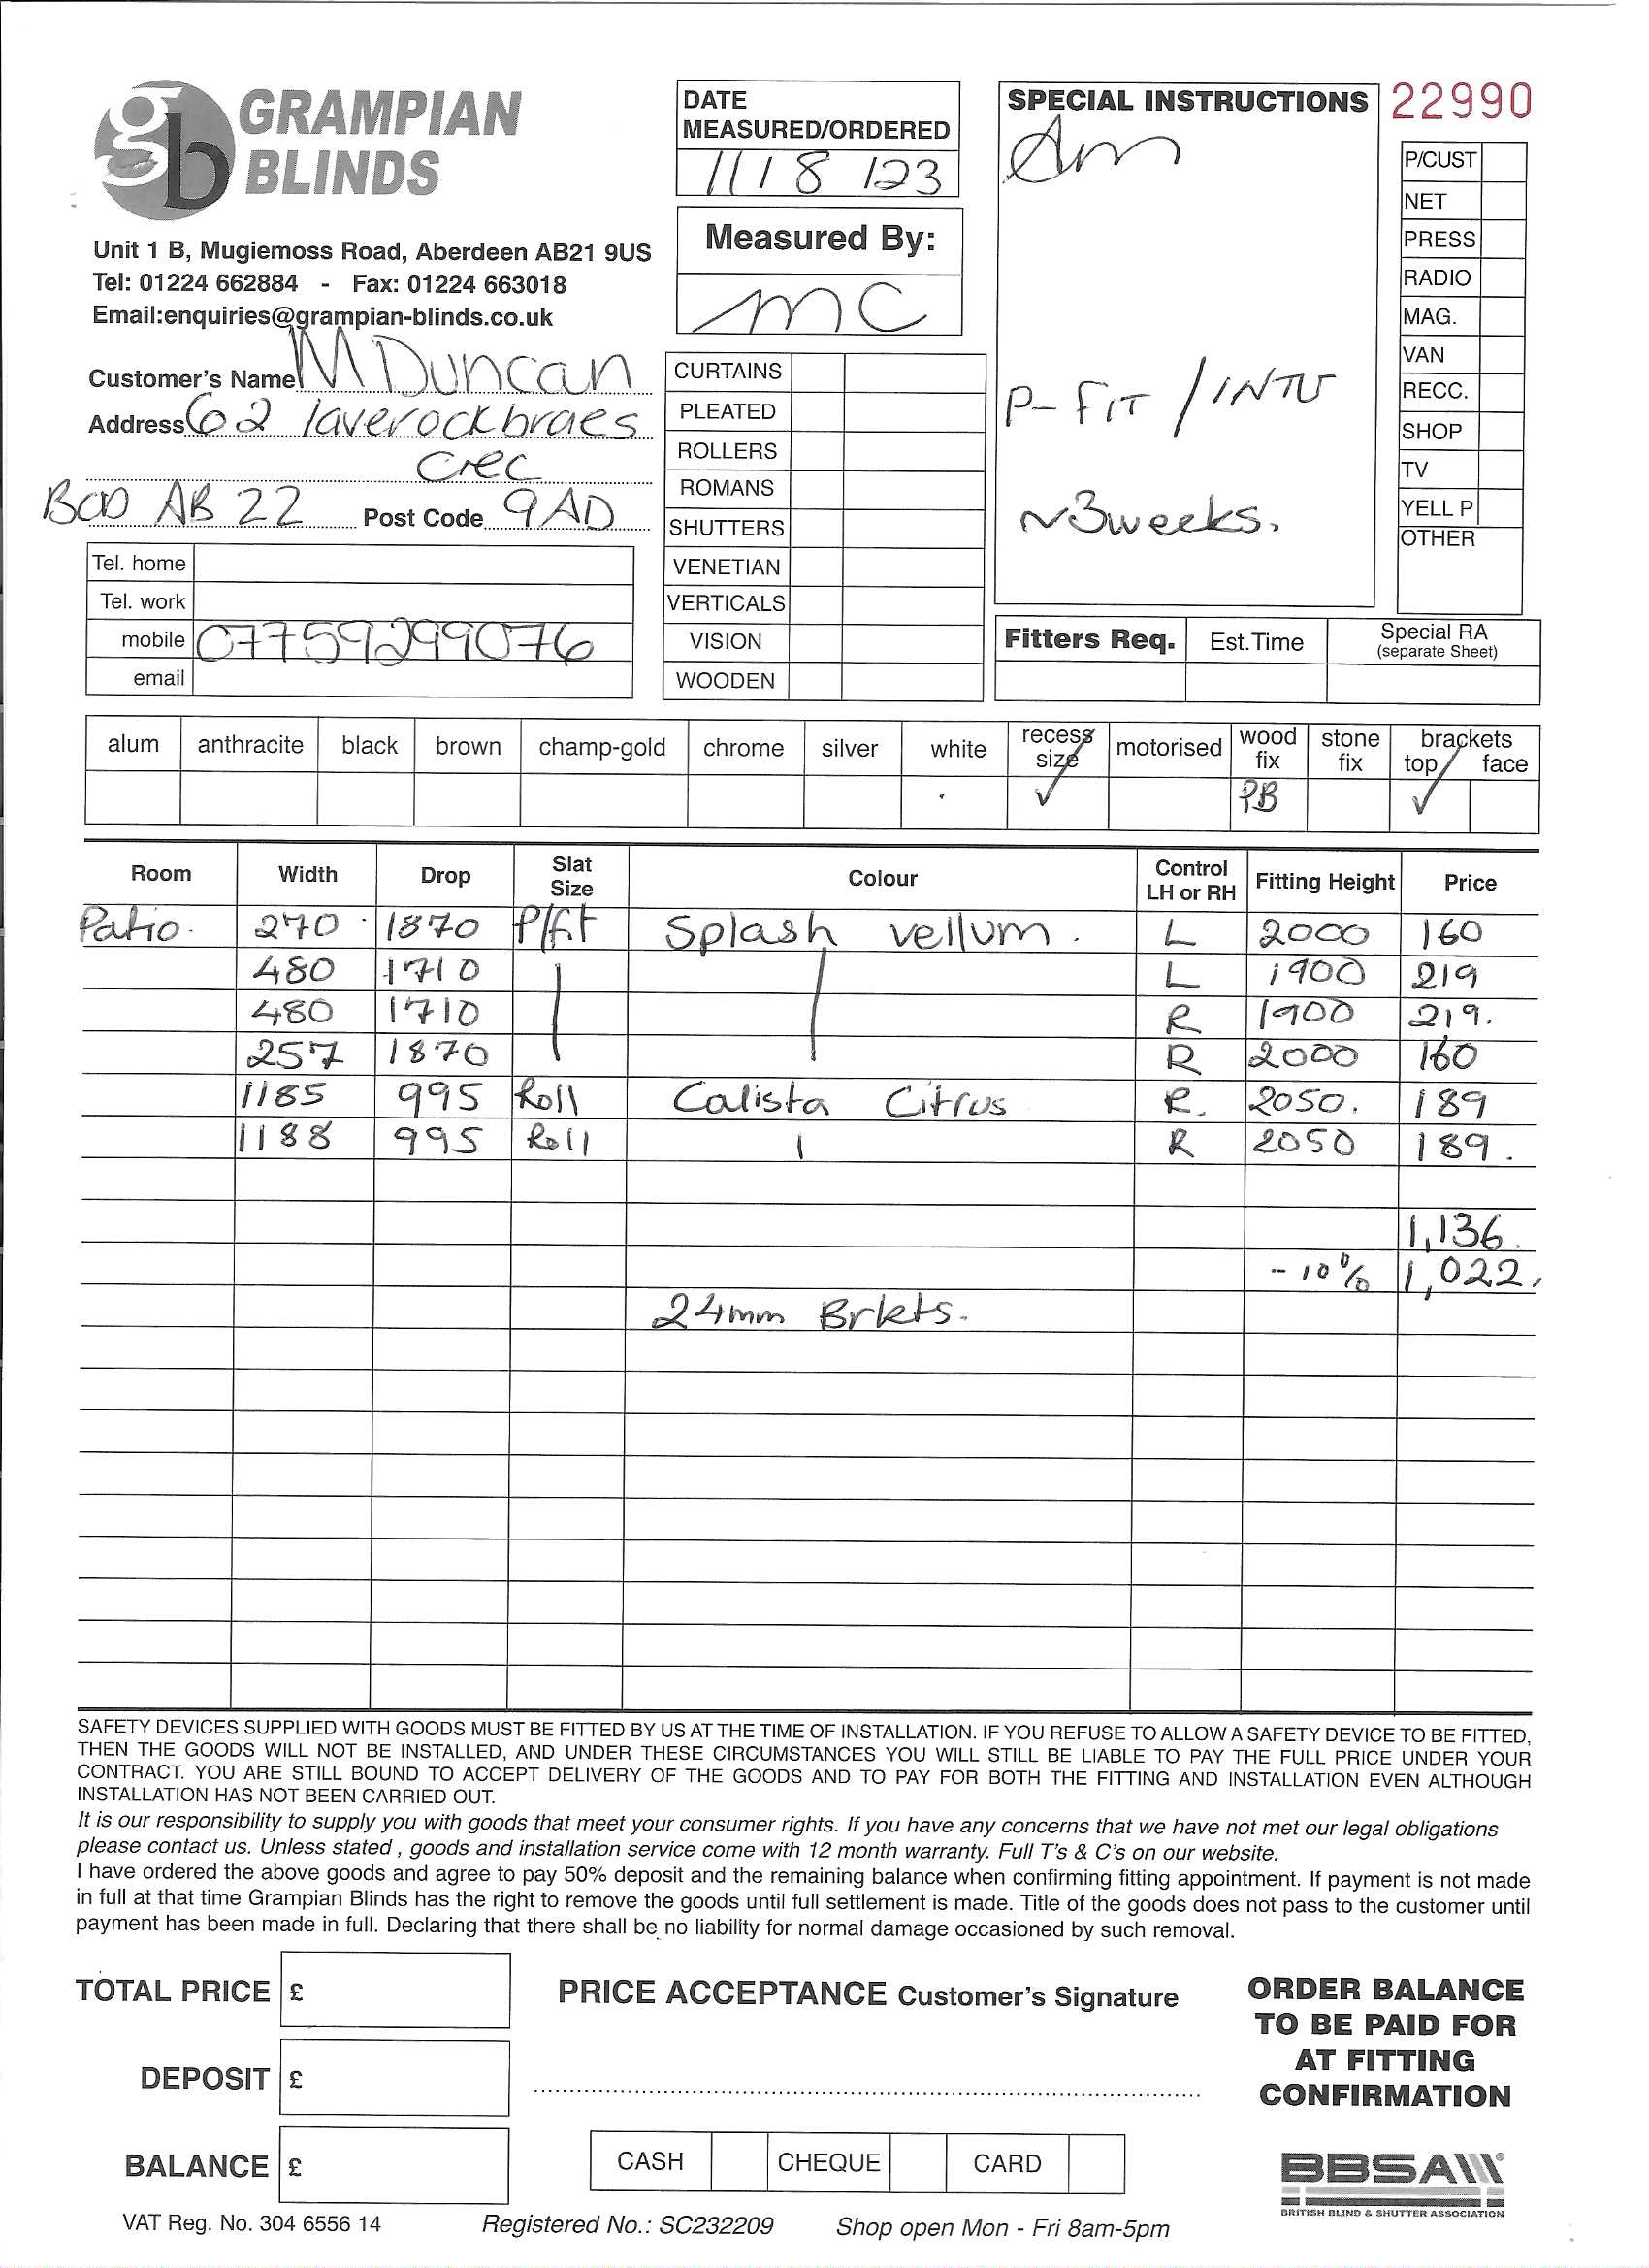 gb GRAMPIAN
BLINDS
Unit 1 B, Mugiemoss Road, Aberdeen AB21 9US
Tel: 01224 662884 - Fax: 01224 663018
Email:enquiries@grampian-blinds.co.uk
Customer's Name M Duncan
Address 62 laverockbraes
Crec
BOD AB 22 Post Code 9AD
Tel. home
Tel. work
mobile 07759299076
email
DATE
MEASURED/ORDERED
11/8/23
Measured By:
MC
CURTAINS
PLEATED
ROLLERS
ROMANS
SHUTTERS
VENETIAN
VERTICALS
VISION
WOODEN
SPECIAL INSTRUCTIONS
Am
P-FIT / INTU
~3weeks.
22990
P/CUST
NET
PRESS
RADIO
MAG.
VAN
RECC.
SHOP
TV
YELL P
OTHER
Fitters Req. Est.Time Special RA
(separate Sheet)
alum anthracite black brown champ-gold chrome silver white recess size motorised wood fix stone fix brackets top face
✓ PB ✓
Room Width Drop Slat Size Colour Control LH or RH Fitting Height Price
Patio 270 1870 P/fit Splash vellum. L 2000 160
480 1710 L 1900 219
480 1710 R 1900 219.
257 1870 R 2000 160
1185 995 Roll Calista Citrus R. 2050. 189
1188 995 Roll R 2050 189.
1,136.
-10% 1,022.
24mm Brkets.
SAFETY DEVICES SUPPLIED WITH GOODS MUST BE FITTED BY US AT THE TIME OF INSTALLATION. IF YOU REFUSE TO ALLOW A SAFETY DEVICE TO BE FITTED,
THEN THE GOODS WILL NOT BE INSTALLED, AND UNDER THESE CIRCUMSTANCES YOU WILL STILL BE LIABLE TO PAY THE FULL PRICE UNDER YOUR
CONTRACT. YOU ARE STILL BOUND TO ACCEPT DELIVERY OF THE GOODS AND TO PAY FOR BOTH THE FITTING AND INSTALLATION EVEN ALTHOUGH
INSTALLATION HAS NOT BEEN CARRIED OUT.
It is our responsibility to supply you with goods that meet your consumer rights. If you have any concerns that we have not met our legal obligations
please contact us. Unless stated , goods and installation service come with 12 month warranty. Full T's & C's on our website.
I have ordered the above goods and agree to pay 50% deposit and the remaining balance when confirming fitting appointment. If payment is not made
in full at that time Grampian Blinds has the right to remove the goods until full settlement is made. Title of the goods does not pass to the customer until
payment has been made in full. Declaring that there shall be no liability for normal damage occasioned by such removal.
TOTAL PRICE £
DEPOSIT £
BALANCE £
PRICE ACCEPTANCE Customer's Signature
CASH CHEQUE CARD
ORDER BALANCE
TO BE PAID FOR
AT FITTING
CONFIRMATION
BBSA
BRITISH BLIND & SHUTTER ASSOCIATION
VAT Reg. No. 304 6556 14 Registered No.: SC232209 Shop open Mon - Fri 8am-5pm